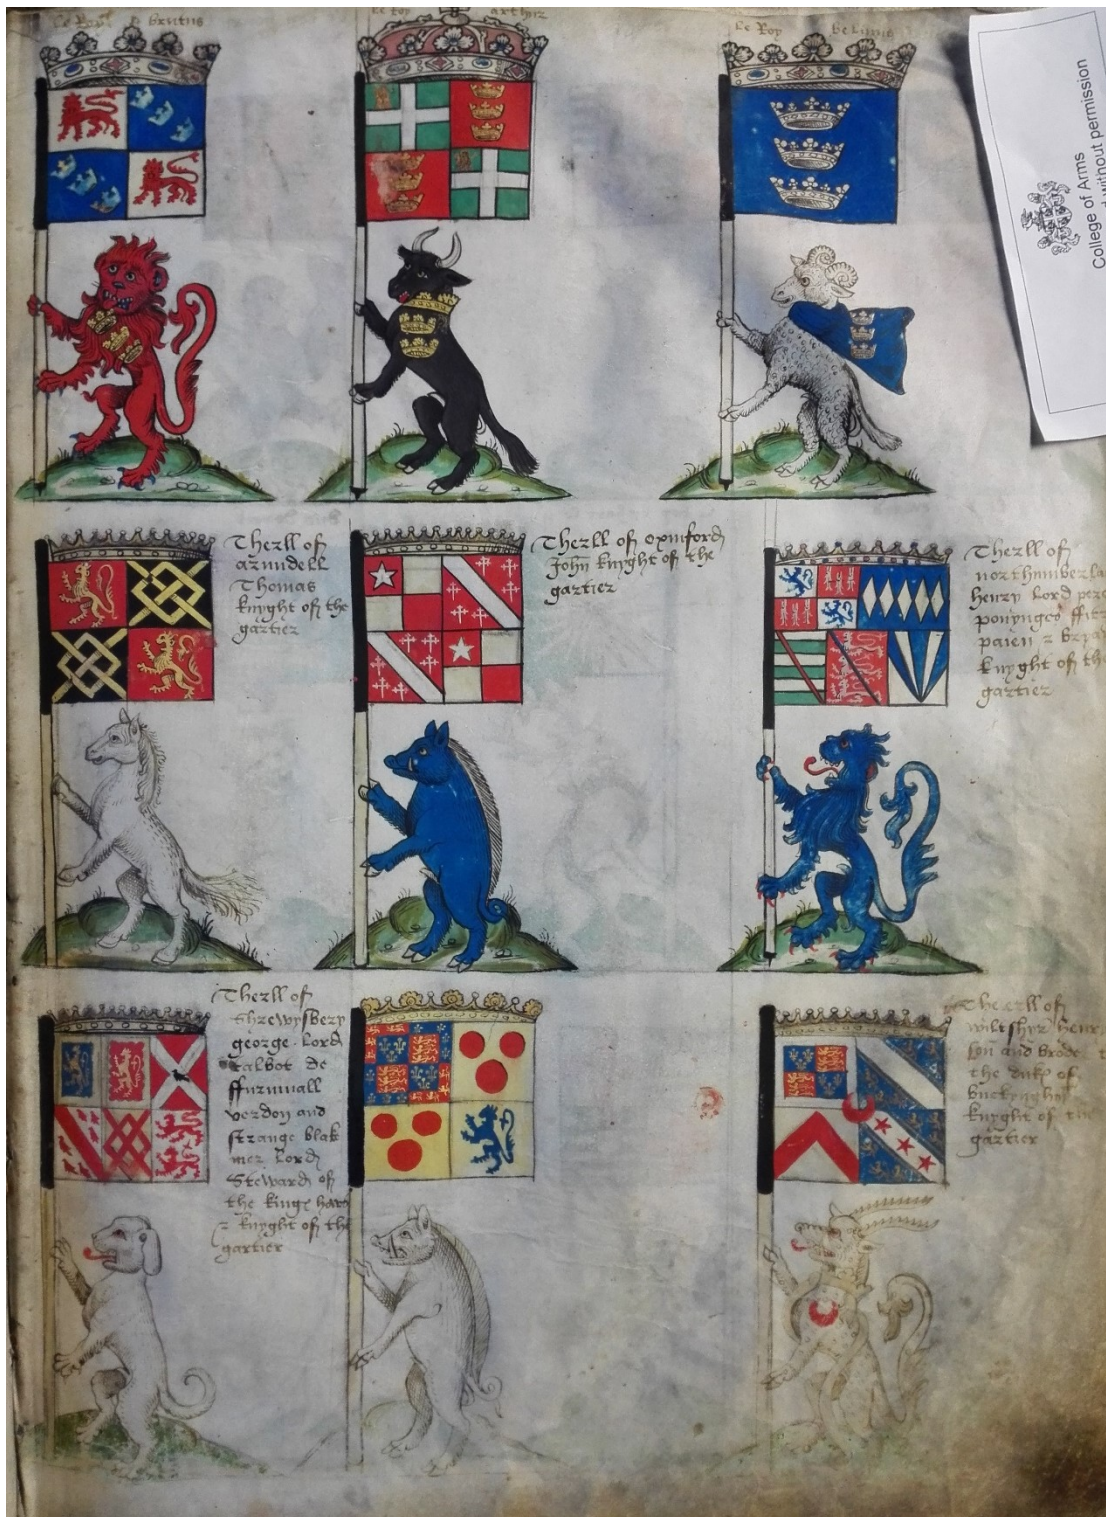 le Roy brutus
le roy arthur
le Roy belinus
College of Arms
d without permission
Therll of
arundell
Thomas
knyght off the
gartier
Therll off oxinford
John knyght of the
gartier
Therll of
northumberla
henry lord perc
ponynges ffitz
paien z brya
knyght off the
gartier
Therll off
Shrewysbery
george lord
talbot de
ffurnivall
verdon and
strange blak
mer lord
Steward off
the kings
z knyght off the
gartier
Therll off
wiltshyr henr
son and broder t
the duke of
buckyngham
knyght of the
gartier